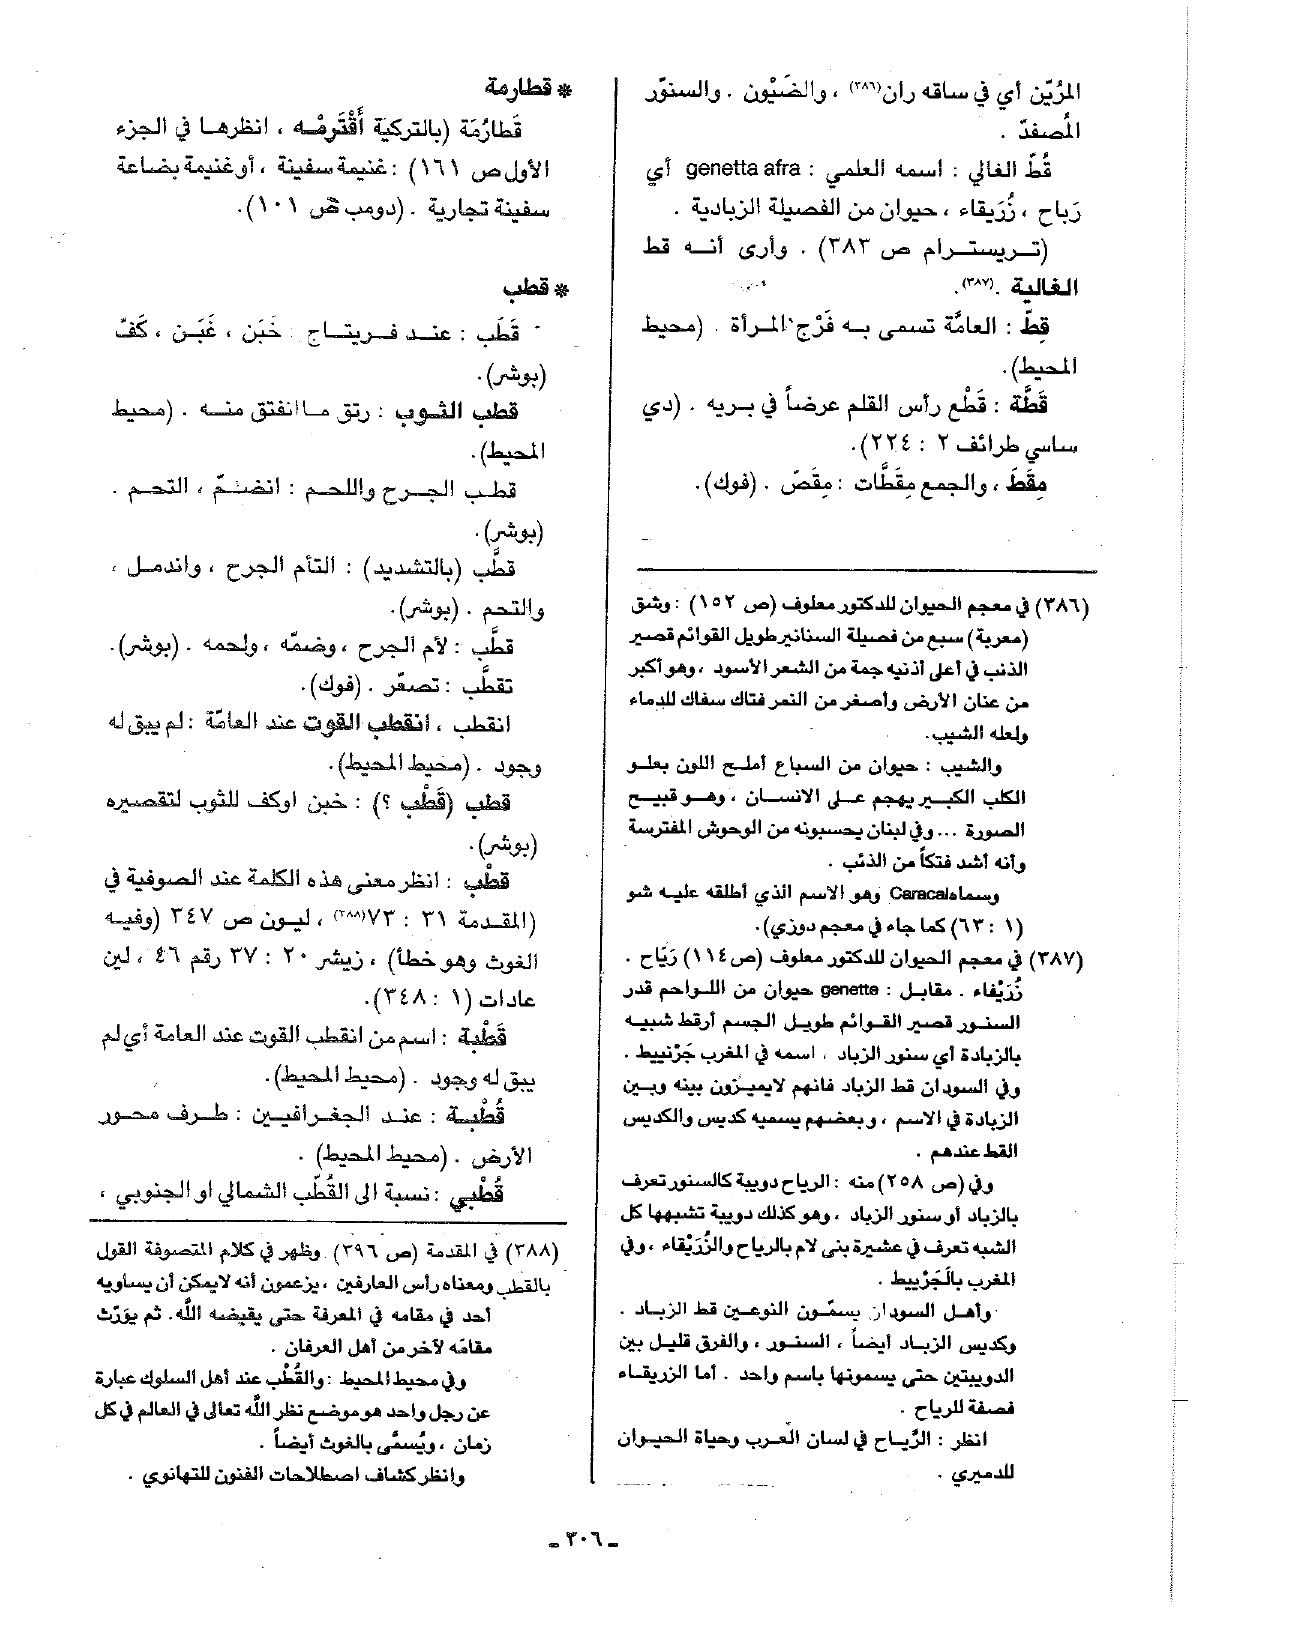 المزيّن أي في ساقه ران(٣٨٦) ، والضَيْون . والسنوّر
المُصفدّ .
قُطّ الغالي : اسمه العلمي : genetta afra أي
رَباح ، زُرَيقاء ، حيوان من الفصيلة الزبادية .
(تريسترام ص ٣٨٣) . وأرى أنه قط
الغالية .(٣٨٧).
قِطّ : العامَّة تسمى به فَرْج المرأة . (محيط
المحيط).
قَطَّة : قَطْع رأس القلم عرضاً في بريه . (دي
ساسي طرائف ٢ : ٢٢٤).
مِقَطّ ، والجمع مِقَطَّات : مِقَصّ . (فوك).
(٣٨٦) في معجم الحيوان للدكتور معلوف (ص ١٥٢) : وشق
(معربة) سبع من فصيلة السنانير طويل القوائم قصير
الذنب في أعلى أذنيه جمة من الشعر الأسود ، وهو أكبر
من عناق الأرض وأصغر من النمر فتاك سفاك للدماء
ولعله الشيب.
والشيب : حيوان من السباع أملح اللون بعلو
الكلب الكبير يهجم على الانسان ، وهو قبيح
الصورة ... وفي لبنان يحسبونه من الوحوش المفترسة
وأنه أشد فتكاً من الذئب .
وسماه Caracal وهو الاسم الذي أطلقه عليه شو
(١ : ٦٣) كما جاء في معجم دوزي).
(٣٨٧) في معجم الحيوان للدكتور معلوف (ص ١١٤) رَبَاح .
زُرَيْقاء . مقابل : genetta حيوان من اللواحم قدر
السنور قصير القوائم طويل الجسم أرقط شبيه
بالزبادة أي سنور الزباد . اسمه في المغرب جَرْنييط .
وفي السودان قط الزباد فانهم لا يميزون بينه وبين
الزبادة في الاسم ، وبعضهم يسميه كديس والكديس
القط عندهم .
وفي (ص ٢٥٨) منه : الرباح دويبة كالسنور تعرف
بالزباد أو سنور الزباد ، وهو كذلك دويبة تشبهها كل
الشبه تعرف في عشيرة بني لام بالرباح والزُّرَيْقاء ، وفي
المغرب بالجَرْبيط .
وأهل السودان يسمّون النوعين قط الزباد .
وكديس الزباد أيضاً ، السنور ، والفرق قليل بين
الدويبتين حتى يسمونها باسم واحد . أما الزريقاء
فصفة للرباح .
انظر : الرُّباح في لسان العرب وحياة الحيوان
للدميري .
* قطارمة
قَطارْمَة (بالتركية أَقْتَرمْه ، انظرها في الجزء
الأول ص ١٦١) : غنيمة سفينة ، أو غنيمة بضاعة
سفينة تجارية . (دومب ص ١٠١).
* قطب
قَطَب : عند فريتاج : خَبَن ، غَبَن ، كَفّ
(بوشر).
قطب الثوب : رتق ما انفتق منه . (محيط
المحيط).
قطب الجرح واللحم : انضمّ ، التحم .
(بوشر).
قطَّب (بالتشديد) : التأم الجرح ، واندمل ،
والتحم . (بوشر).
قطَّب : لأم الجرح ، وضمّه ، ولحمه . (بوشر).
تقطَّب : تصغّر . (فوك).
انقطب ، انقطب القوت عند العامّة : لم يبق له
وجود . (محيط المحيط).
قطب (قَطْب ؟) : خبن اوكف للثوب لتقصيره
(بوشر).
قطْب : أنظر معنى هذه الكلمة عند الصوفية في
(المقدمة ٣١ : ٧٣(٣٨٨) ، ليون ص ٣٤٧ (وفيه
الغوث وهو خطأ) ، زيشر ٢٠ : ٣٧ رقم ٤٦ ، لين
عادات (١ : ٣٤٨).
قَطْبة : اسم من انقطب القوت عند العامة أي لم
يبق له وجود . (محيط المحيط).
قُطْبية : عند الجغرافيين : طرف محور
الأرض . (محيط المحيط) .
قُطْبي : نسبة الى القُطْب الشمالي او الجنوبي ،
(٣٨٨) في المقدمة (ص ٣٩٦) وظهر في كلام المتصوفة القول
بالقطب ومعناه رأس العارفين ، يزعمون أنه لا يمكن أن يساويه
أحد في مقامه في المعرفة حتى يقبضه اللّه. ثم يوّرث
مقامَه لآخر من أهل العرفان .
وفي محيط المحيط : والقُطْب عند أهل السلوك عبارة
عن رجل واحد هو موضع نظر اللّه تعالى في العالم في كل
زمان ، ويُسمَّى بالغوث أيضاً .
وانظر كشاف اصطلاحات الفنون للتهانوي .
ـ ٣٠٦ ـ